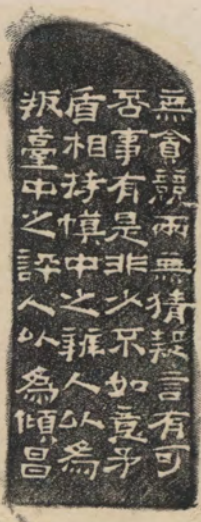 無貪競兩無猜疑言有可
否事有是非少不如意矛
盾相持幙中之辨人以為
叛臺中之評人以為傾昌